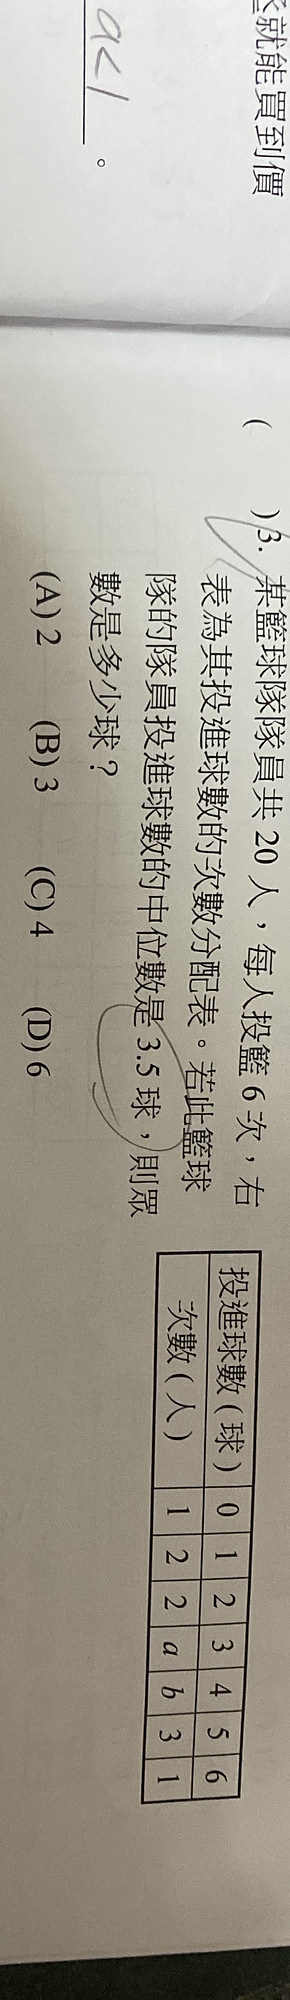 就能買到價
a<1 。
(　　)3. 某籃球隊隊員共 20 人，每人投籃 6 次，右
表為其投進球數的次數分配表。若此籃球
隊的隊員投進球數的中位數是 3.5 球，則眾
數是多少球？
(A) 2　(B) 3　(C) 4　(D) 6
投進球數(球) 0 1 2 3 4 5 6
次數(人) 1 2 2 a b 3 1